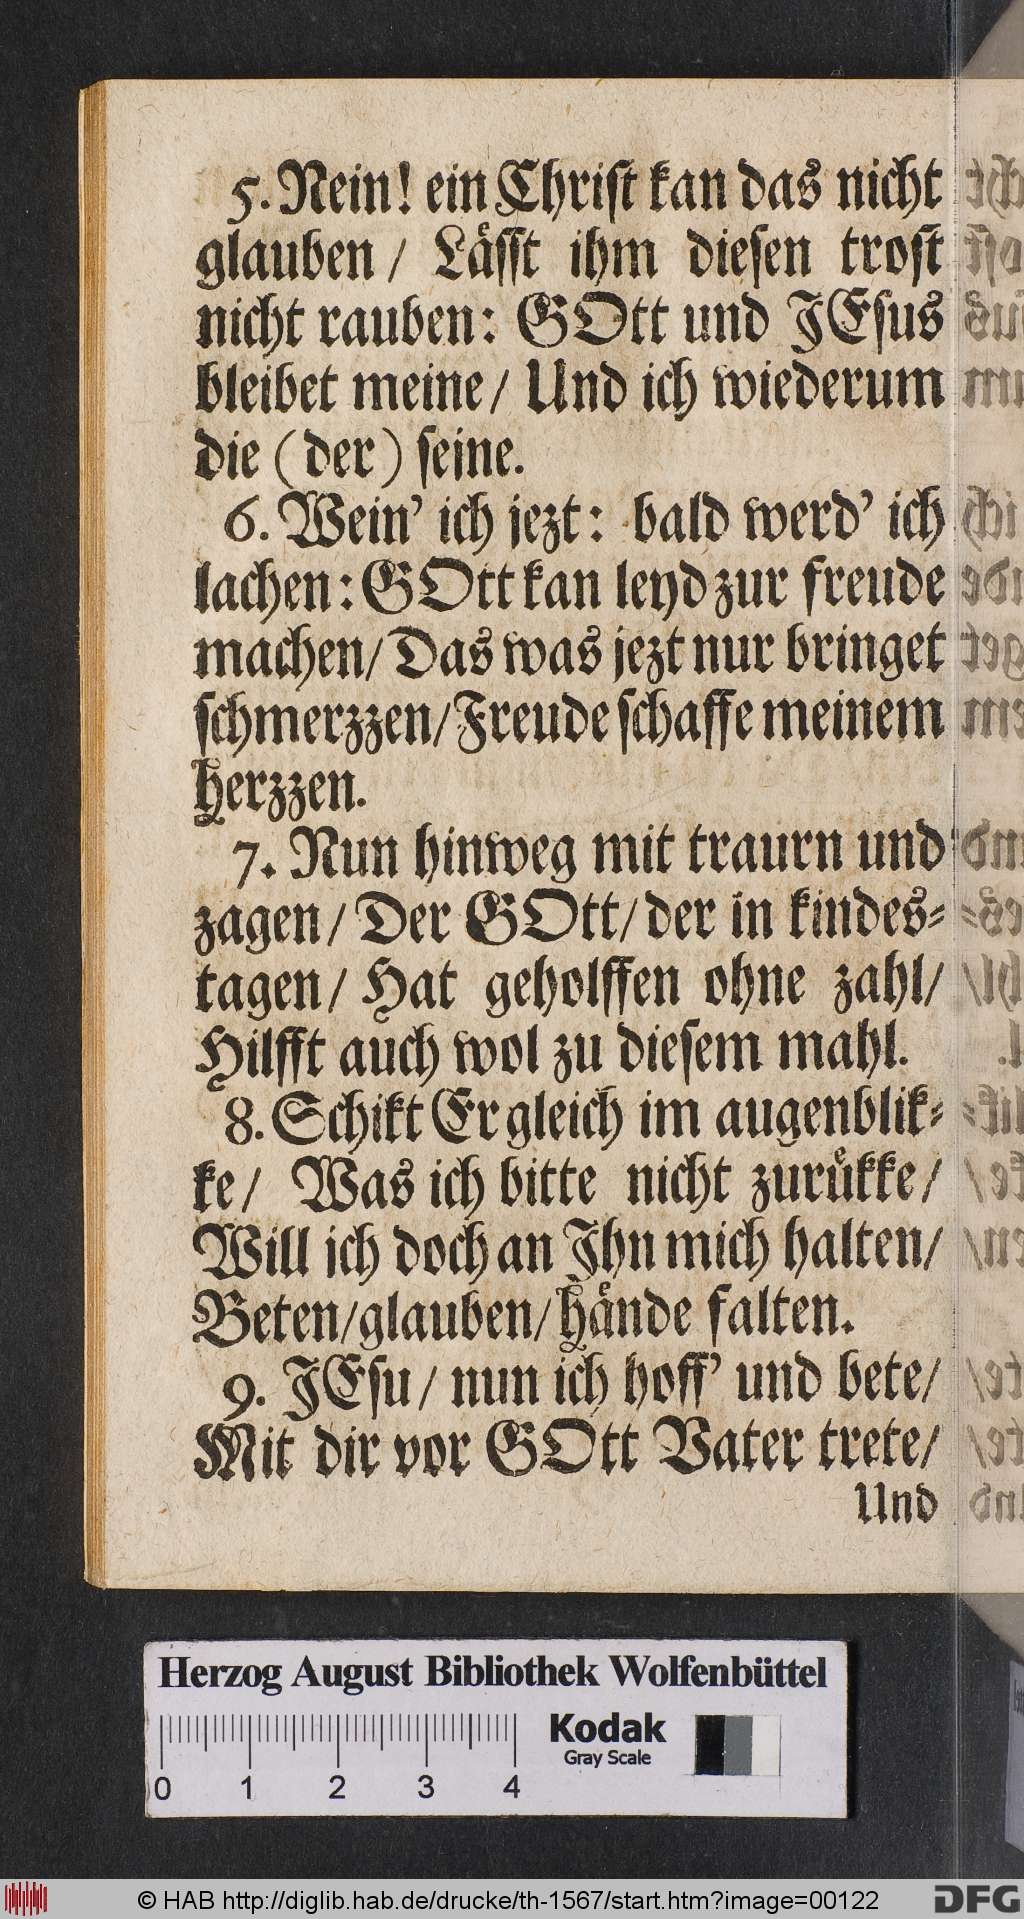 5. Nein! ein Christ kan das nicht
glauben / Låsst ihm diesen trost
nicht rauben: GOtt und JEsus
bleibet meine / Und ich wiederum
die (der) seine.
6. Wein' ich jezt: bald werd' ich
lachen: GOtt kan leyd zur freude
machen / Das was jezt nur bringet
schmerzzen / Freude schaffe meinem
herzzen.
7. Nun hinweg mit traurn und
zagen / Der GOtt / der in kindes=
tagen / Hat geholffen ohne zahl /
Hilfft auch wol zu diesem mahl.
8. Schikt Er gleich im augenblik=
ke / Was ich bitte nicht zurůkke /
Will ich doch an Jhn mich halten /
Beten / glauben / hånde falten.
9. JEsu / nun ich hoff' und bete /
Mit dir vor GOtt Vater trete /
Und
Herzog August Bibliothek Wolfenbüttel
Kodak
Gray Scale
0 1 2 3 4
© HAB http://diglib.hab.de/drucke/th-1567/start.htm?image=00122
DFG